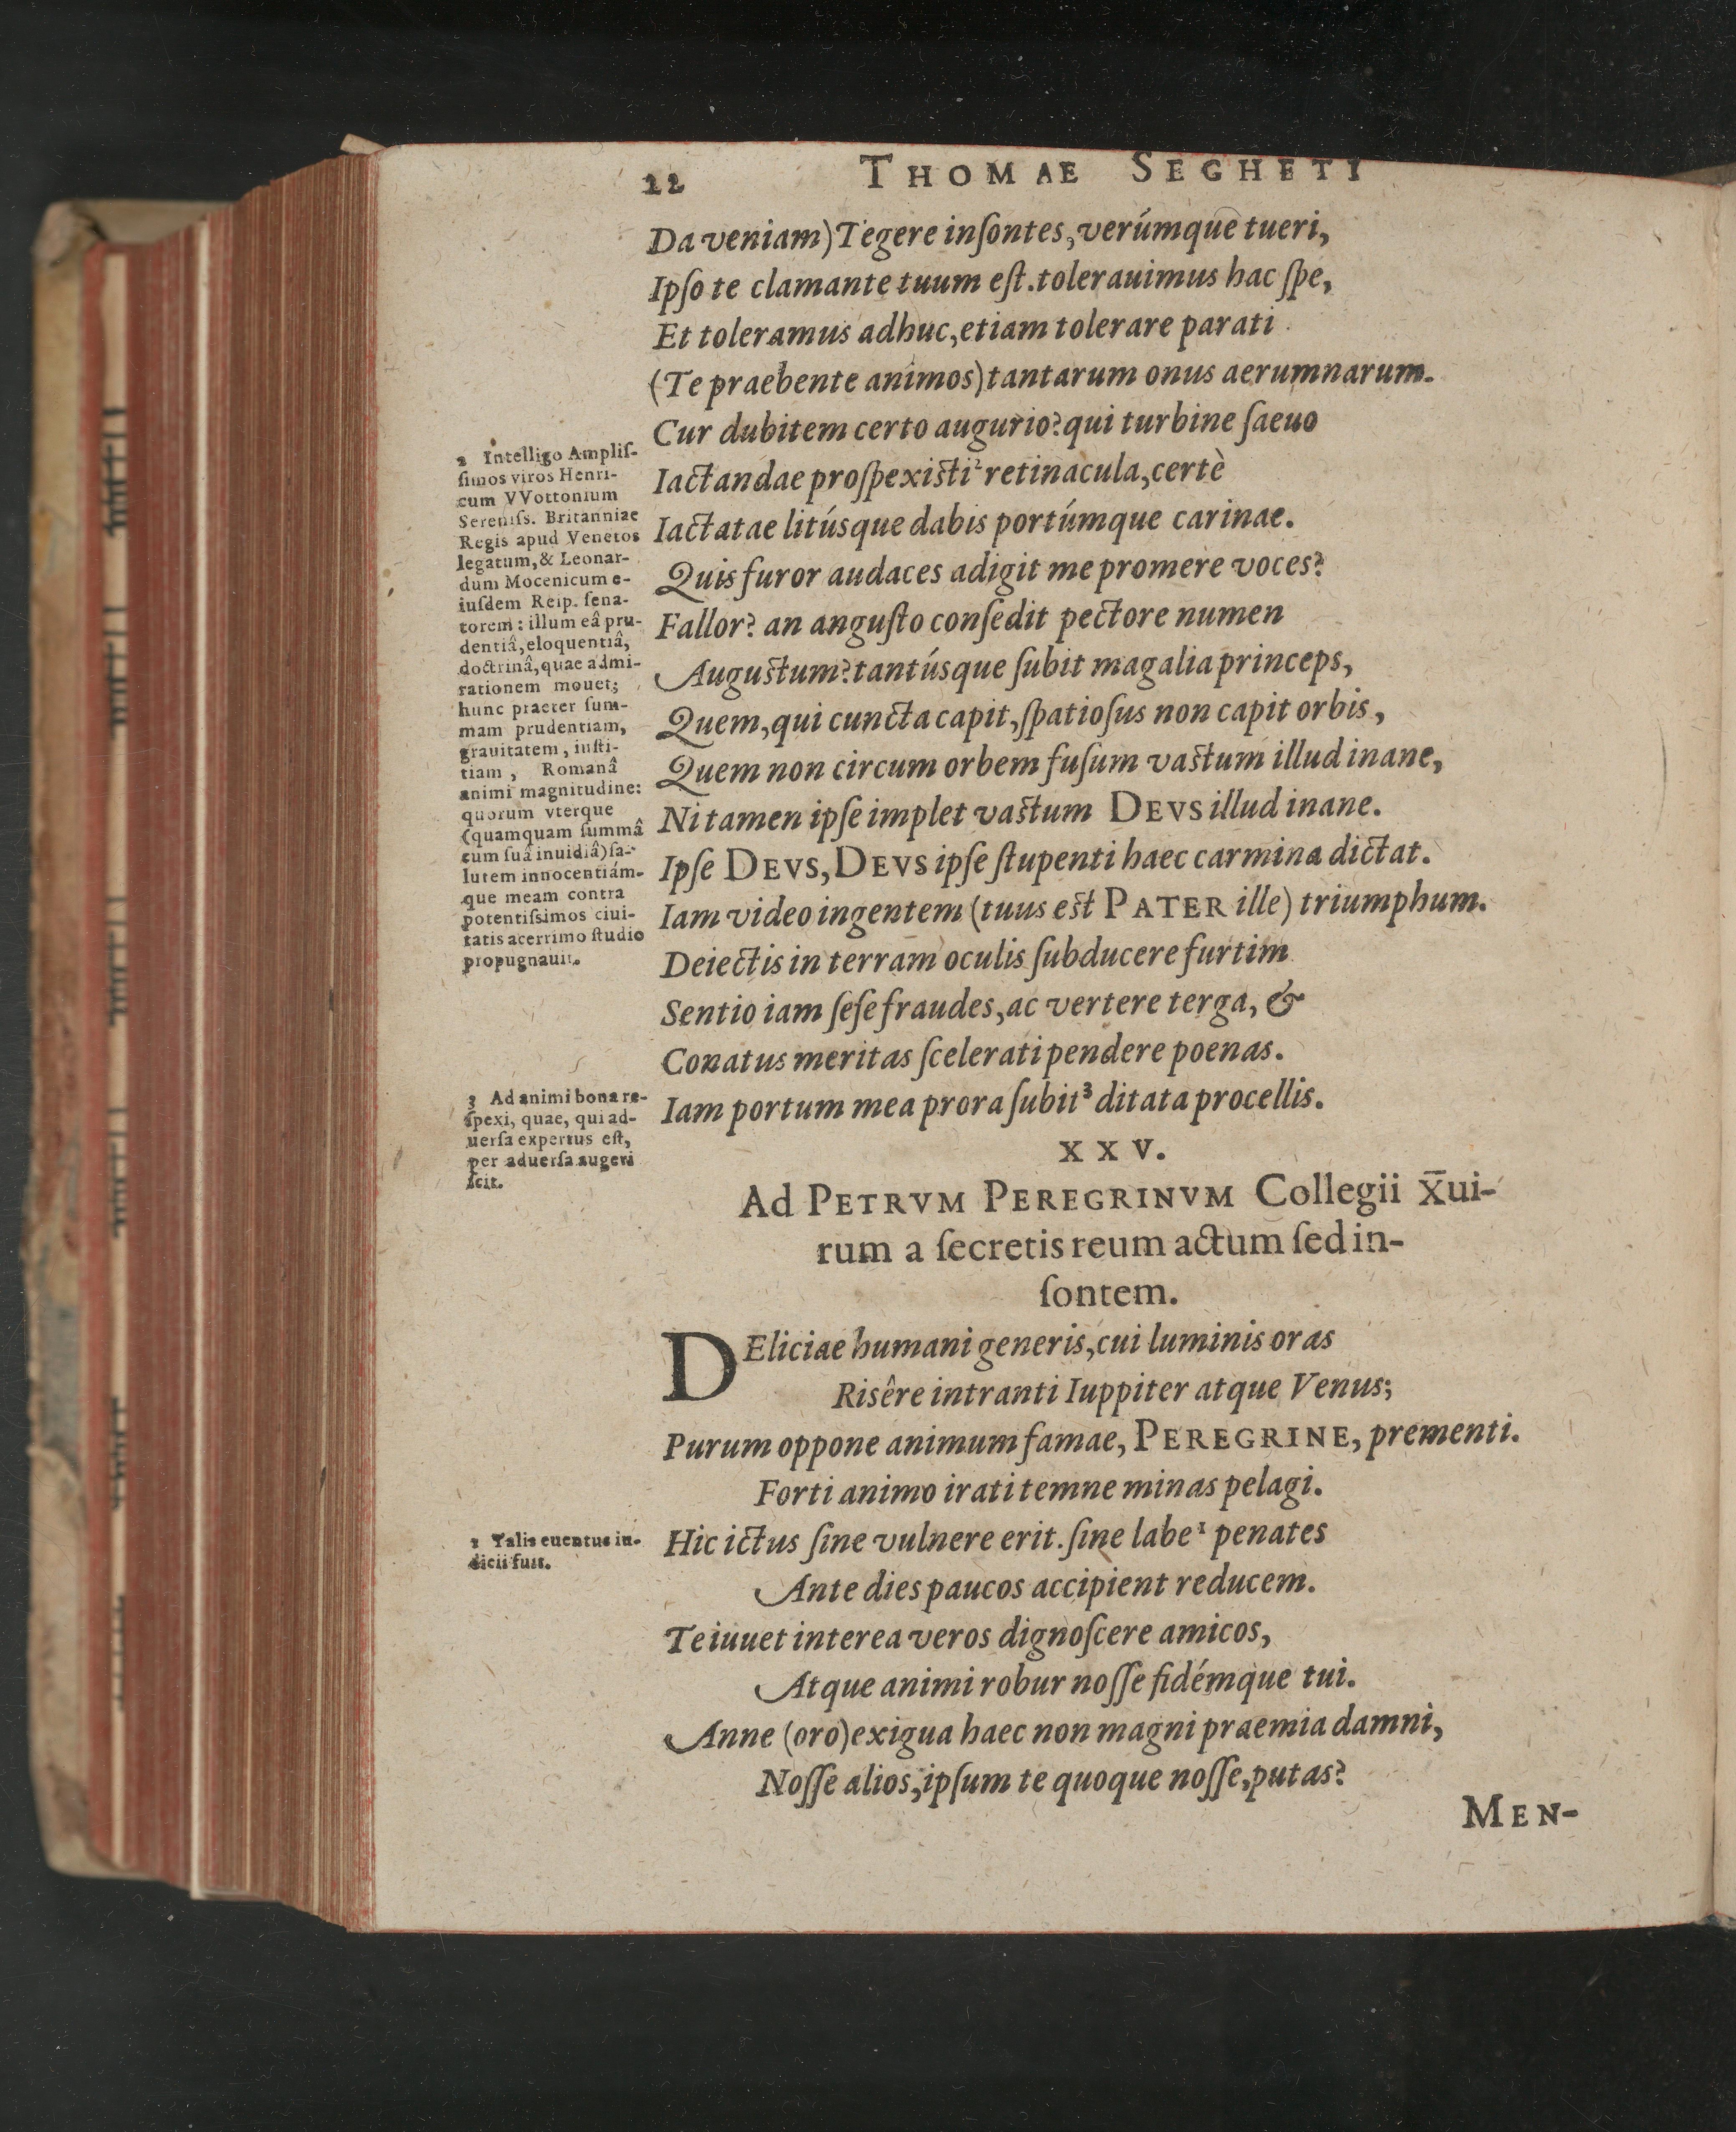 22 THOMAE SEGHETI
Da veniam) Tegere inſontes, verúmque tueri,
Ipſo te clamante tuum eſt. tolerauimus hac ſpe,
Et toleramus adhuc, etiam tolerare parati
(Te praebente animos) tantarum onus aerumnarum.
Cur dubitem certo augurio? qui turbine ſaeuo
Iactandae proſpexisti² retinacula, certè
Iactatae litúsque dabis portúmque carinae.
Quis furor audaces adigit me promere voces?
Fallor? an anguſto conſedit pectore numen
Augustum? tantúsque ſubit magalia princeps,
Quem, qui cuncta capit, ſpatioſus non capit orbis,
Quem non circum orbem fuſum vastum illud inane,
Ni tamen ipſe implet vastum DEVS illud inane.
Ipſe DEVS, DEVS ipſe ſtupenti haec carmina dictat.
Iam video ingentem (tuus est PATER ille) triumphum.
Deiectis in terram oculis ſubducere furtim
Sentio iam ſeſe fraudes, ac vertere terga, &
Conatus meritas ſcelerati pendere poenas.
Iam portum mea prora ſubit³ ditata procellis.
2 Intelligo Ampliſ-
ſimos viros Henri-
cum VVottonium
Sereniſs. Britanniae
Regis apud Venetos
legatum, & Leonar-
dum Mocenicum e-
iuſdem Reip. ſena-
torem: illum eâ pru-
dentiâ, eloquentiâ,
doctrinâ, quae admi-
rationem mouet;
hunc praeter ſum-
mam prudentiam,
grauitatem, iuſti-
tiam, Romanâ
animi magnitudine:
quorum vterque
(quamquam ſummâ
cum ſuâ inuidiâ) ſa-
lutem innocentiám-
que meam contra
potentiſsimos ciui-
tatis acerrimo ſtudio
propugnauit.
3 Ad animi bona re-
ſpexi, quae, qui ad-
uerſa expertus eſt,
per aduerſa augeri
ſcit.
XXV.
Ad PETRVM PEREGRINVM Collegii X̅ui-
rum a ſecretis reum actum ſed in-
ſontem.
DEliciae humani generis, cui luminis oras
Risêre intranti Iuppiter atque Venus;
Purum oppone animum famae, PEREGRINE, prementi.
Forti animo irati temne minas pelagi.
Hic ictus ſine vulnere erit. ſine labe¹ penates
Ante dies paucos accipient reducem.
Te iuuet interea veros dignoſcere amicos,
Atque animi robur noſſe fidémque tui.
Anne (oro) exigua haec non magni praemia damni,
Noſſe alios, ipſum te quoque noſſe, putas?
1 Talis euentus iu-
dicii fuit.
MEN-